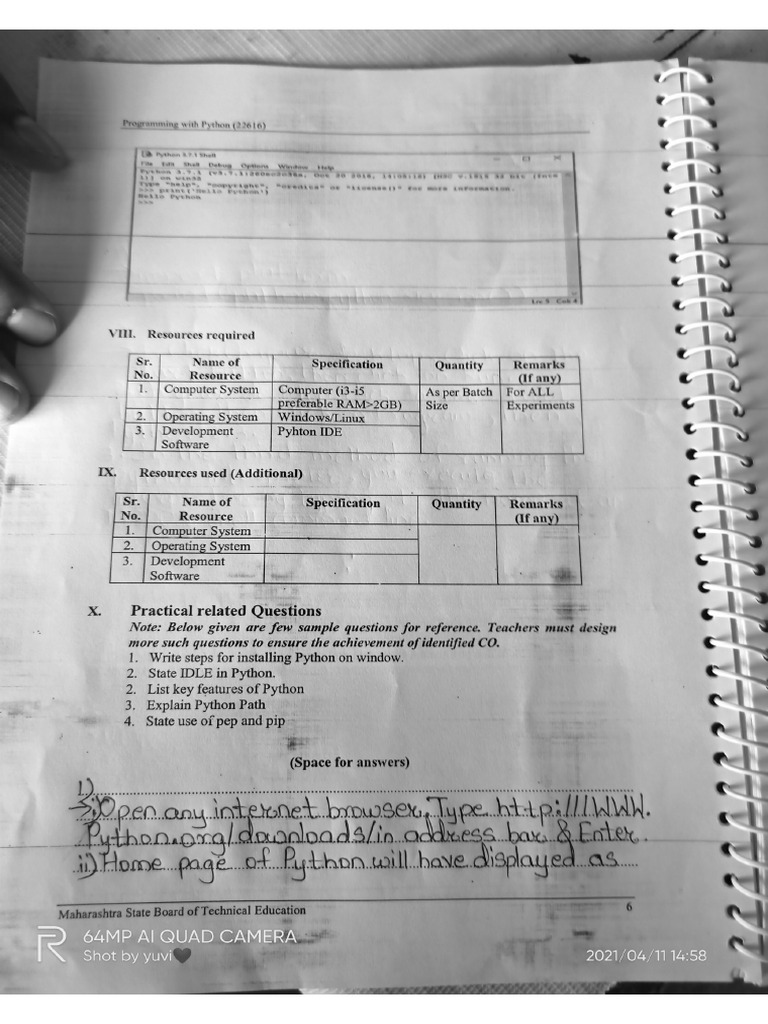 Programming with Python (22616)
Python 3.7.1 Shell
File Edit Shell Debug Options Window Help
Type "help", "copyright", "credits" or "license()" for more information.
>>> print('Hello Python')
Hello Python
>>>
Ln: 5 Col: 4
VIII. Resources required
Sr. No. Name of Resource Specification Quantity Remarks (If any)
1. Computer System Computer (i3-i5 preferable RAM>2GB) As per Batch Size For ALL Experiments
2. Operating System Windows/Linux
3. Development Software Pyhton IDE
IX. Resources used (Additional)
Sr. No. Name of Resource Specification Quantity Remarks (If any)
1. Computer System
2. Operating System
3. Development Software
X. Practical related Questions
Note: Below given are few sample questions for reference. Teachers must design
more such questions to ensure the achievement of identified CO.
1. Write steps for installing Python on window.
2. State IDLE in Python.
2. List key features of Python
3. Explain Python Path
4. State use of pep and pip
(Space for answers)
1)
i) Open any internet browser, Type http:///WWW.
Python.org/downloads/in address bar & Enter.
ii) Home page of Python will have displayed as
Maharashtra State Board of Technical Education 6
64MP AI QUAD CAMERA
Shot by yuvi🖤
2021/04/11 14:58